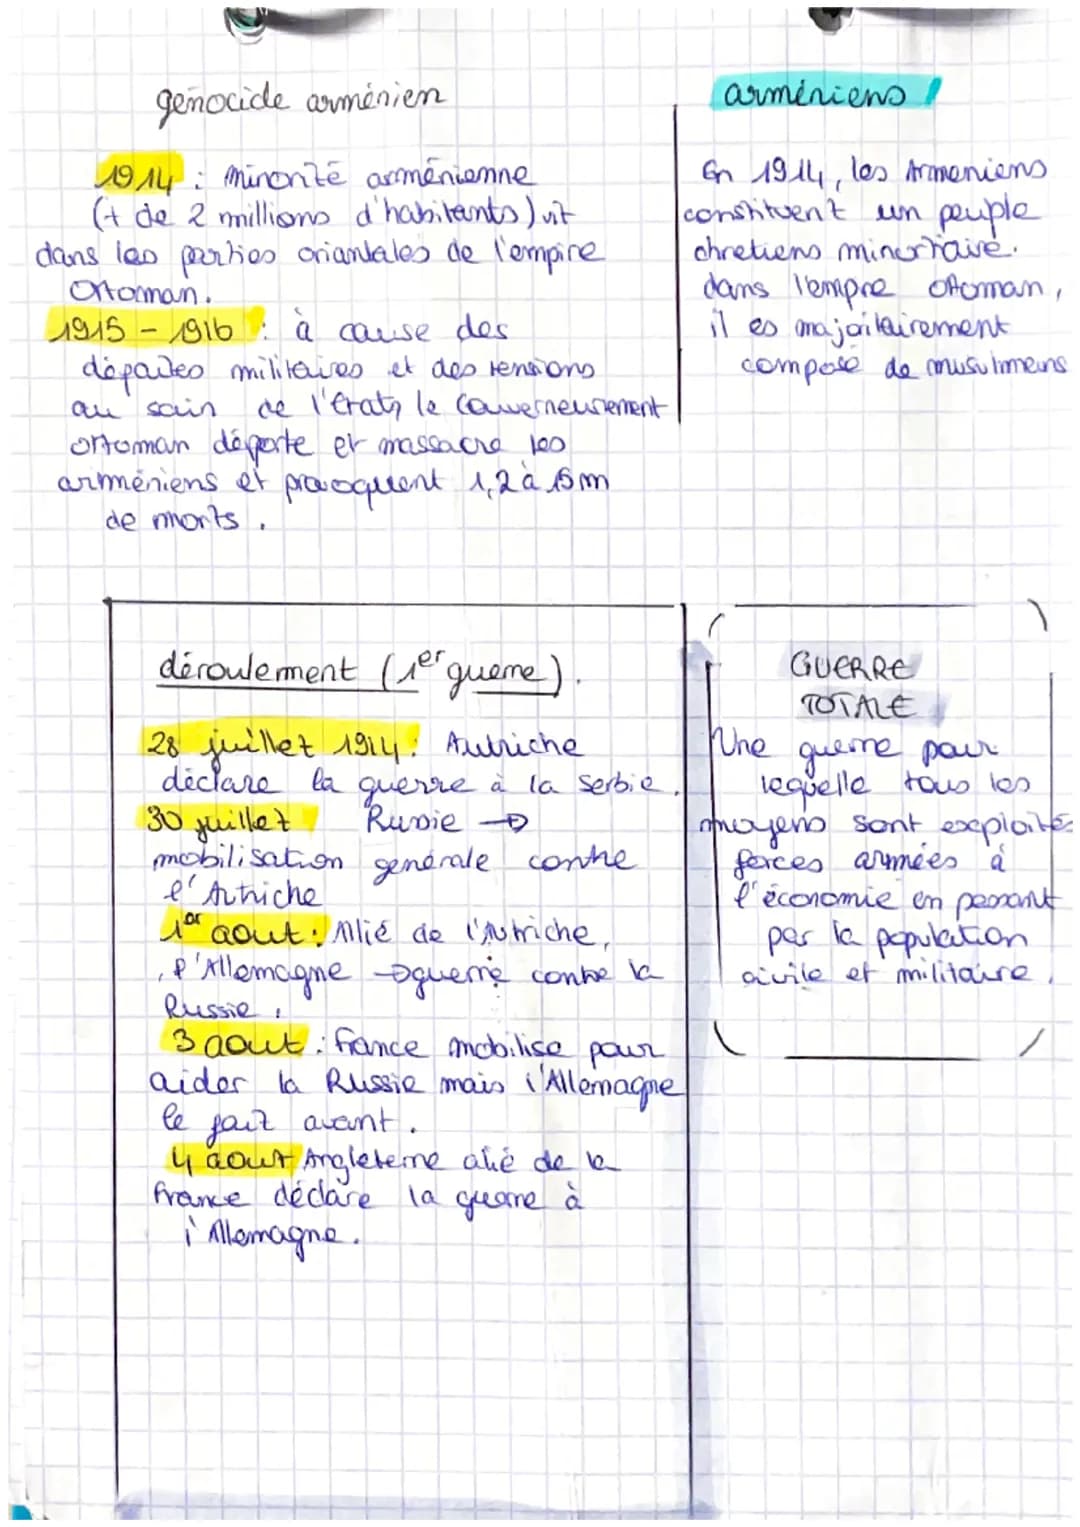 génocide arménien
1914 : minorité arménienne
(+ de 2 millions d'habitants) vit
dans les parties oriantales de l'empire
Ottoman.
1915 - 1916 : à cause des
défaites militaires et des tensions
au sain de l'état, le
ottoman déporte et massacre les
arméniens et provoquent 1,2 à 15m
de morts.
arméniens !
En 1914, les Armeniens
constituent un peuple
chretiens minoritaire.
dans l'empre ottoman,
il es majoritairement
compose de musulmans
déroulement (1er guerre).
28 juillet 1914 : Autriche
déclare la guerre à la Serbie.
30 juillet Russie →
mobilisation générale contre
l'Autriche
1er aout : Allié de l'Autriche,
l'Allemagne → guerre contre la
Russie.
3 aout : France mobilise pour
aider la Russie mais l'Allemagne
le fait avant.
4 aout Angleterre alié de la
France déclare la guerre à
l'Allemagne.
GUERRE
TOTALE
Une guerre pour
lequelle tous les
moyens sont exploités
forces armées à
l'économie en passant
par la population
civile et militaire.